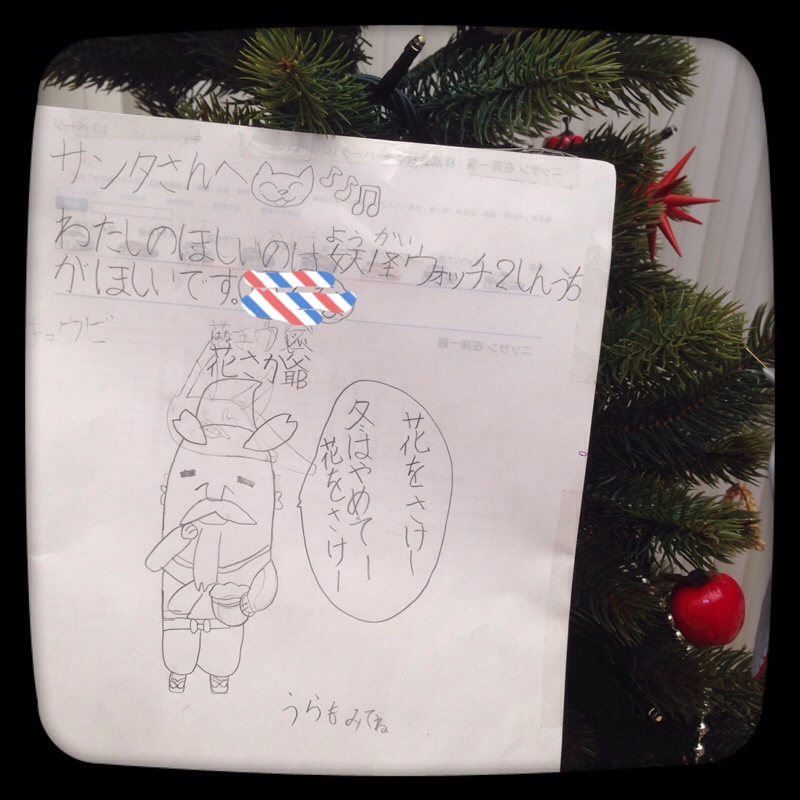 サンタさんへ
ようかい
わたしのほしいのは妖怪ウォッチ2しんうち
がほしいです。
キュウビ
はな じじい
花さか爺
花をさけー
冬はやめてー
花をさけー
うらもみてね